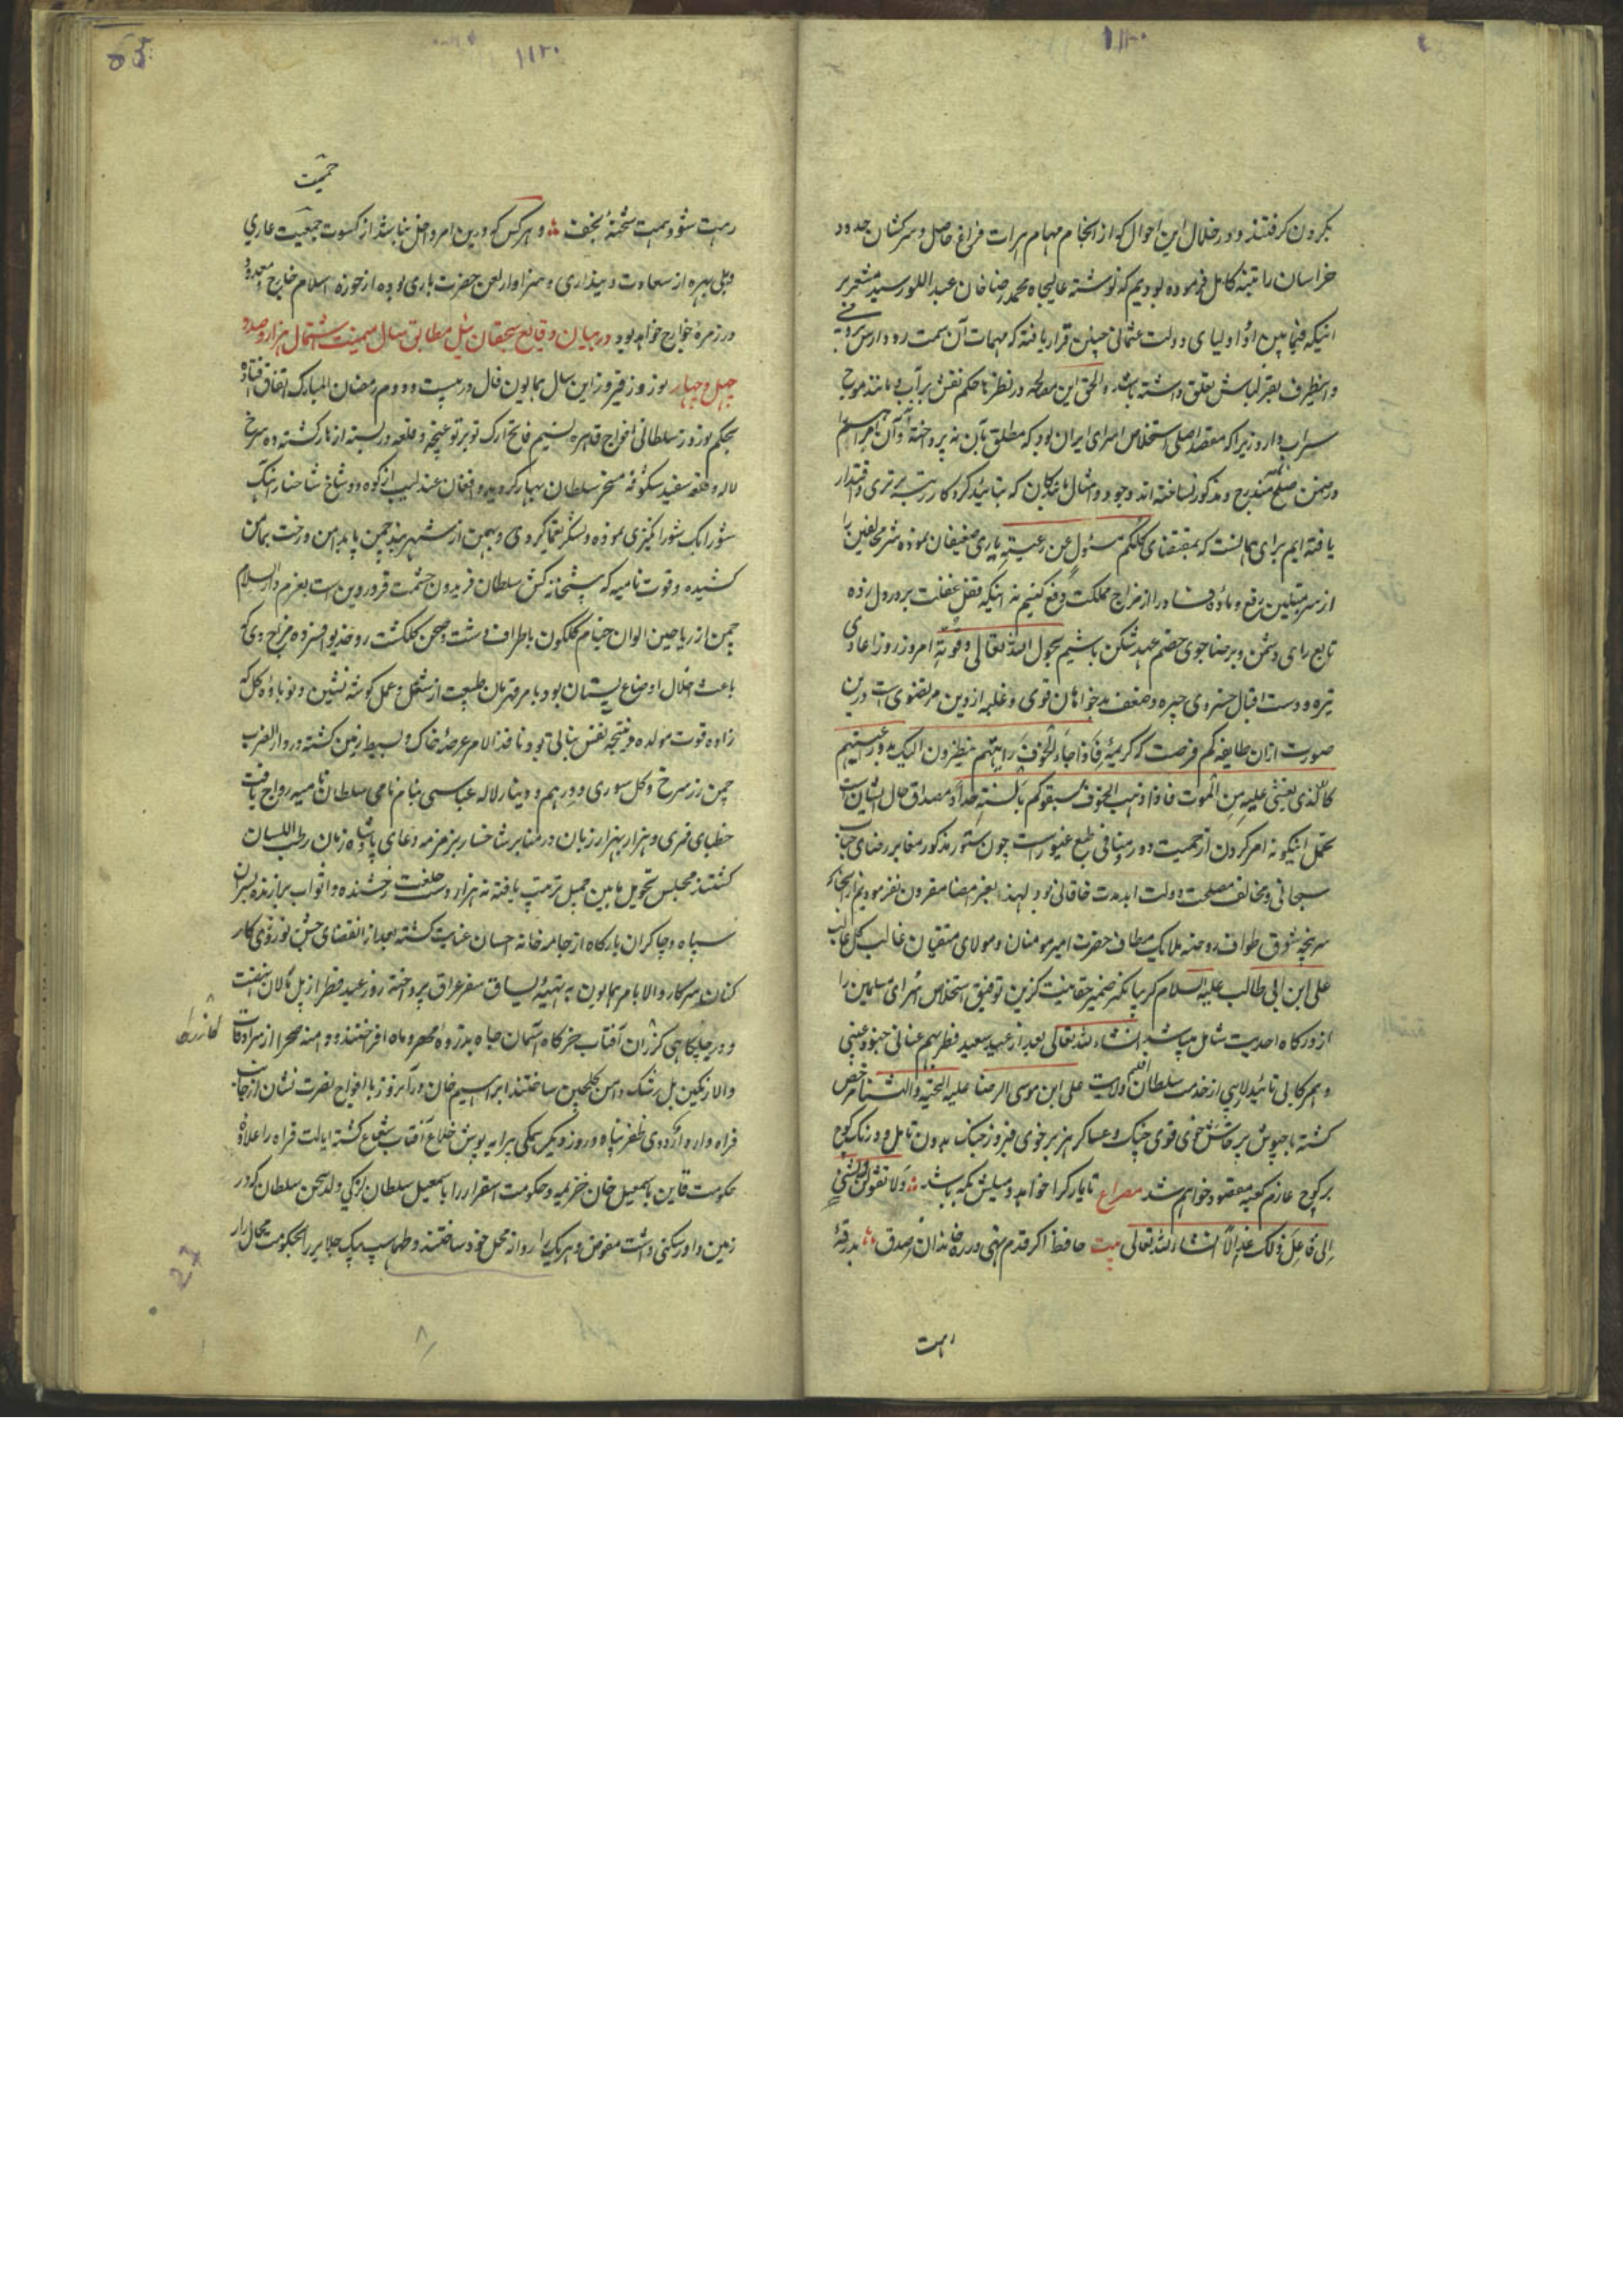 ۱۱۲۰
بگردن گرفتند و در خلال این احوال که از انجام مهام هرات فراغ حاصل و سرکشان حدود
خراسان را تنبیه کامل فرموده بودیم که نوشته عالیجاه محمد رضا خان عبداللو رسید مشعر بر
اینکه فیمابین او و اولیای دولت عثمانی چنین قرار یافته که مهمات آن سمت رود ارس برومی
و اینطرف بقزلباش تعلق داشته باشد والحق این مصالحه در نظرها حکم نقش بر آب و مانند موج
سراب دارد زیرا که مقصد اصلی استخلاص اسرای ایران بود که مطلق بآن نپرداخته و آن امر اهم را
در ضمن صلح مندرج و مذکور نساخته اند وجود امثال ما بندگان که بتایید کردگار رتبه برتری و اقتدار
یافته ایم برای همانست که بمقتضای کلکم مسئول عن رعیته یاری ضعیفان نموده شر مخالفین را
از سر مبتلین رفع و ماده فساد را از مزاج مملکت دفع کنیم نه اینکه قفل غفلت بر در دل زده
تابع رای دشمن و برضاجوی خصم عهد شکن باشیم بحول الله تعالی و قوته امروز روز اعادی
تیره و دست اقبال خسروی چیره و ضعف بدخواهان قوی و غلبه از دین مرتضوی است درین
صورت ازان طایفه کم فرصت که کریمه فاذا جاء الخوف رایتهم ینظرون الیک تدور اعینهم
کالذی یغشی علیه من الموت فاذا ذهب الخوف سلقوکم بالسنة حداد مصداق حال ایشان است
تحمل اینگونه امر کردن از حمیت دور و منافی طبع غیور است چون دستور مذکور مغایر رضای جناب
سبحانی و مخالف مصلحت دولت ابدمدت خاقانی بود لهذا بعز امضا مقرون نفرمودیم از آنجا که
سرپنجه شوق طواف روضه ملایک مطاف حضرت امیرمومنان و مولای متقیان غالب کل غالب
علی ابن ابی طالب علیه السلام گریبانگیر ضمیر حقانیت گزین و توفیق استخلاص اسرای مسلمین را
از درگاه احدیت شامل میباشد انشاء الله تعالی بعد از عید سعید فطر بهم عنانی جنود غیبی
و همرکابی تایید لاریبی از خدمت سلطان اقلیم ولایت علی ابن موسی الرضا علیه التحیة والثنا مرخص
گشته با جیوش پرخاش خوی قوی چنگ و عساکر هزبر خوی فیروز جنگ بدون تامل و درنگ کوچ
بر کوچ عازم کعبه مقصود خواهم شد مصراع تا یار کرا خواهد و میلش بکه باشد ولا تقولن لشئ
انی فاعل ذلک غدا الا انشاء الله تعالی بیت حافظ اگر قدم نهی در ره خاندان بصدق بدرقه
رهت
۱۱۲۰
65
حمیت
رهت شود همت شحنهٔ نجف و هر کس که درین امر داخل نباشد از کسوت جمعیت عاری
و بی بهره از سعادت دینداری و سزاوار لعن حضرت باری بوده از حوزه اسلام خارج و معدود
در زمره خوارج خواهد بود در بیان وقایع سیچقان ئیل مطابق سال میمنت اشتمال هزار و صد و
چهل و چهار نوروز فیروز این سال همایون فال در بیست و دوم رمضان المبارک اتفاق افتاد
بحکم نوروز سلطانی افواج قاهره نسیم فاتح ارک تو بر توی غنچه و قلعه دربسته ازهار گشته ده سرخ
لاله و قلعه سفید شکوفه مسخر سلطان بهار گردید و افغان عندلیب از کوه و شاخ شاخسار آهنگ
شورانگیزی نموده و لشکر یغماگر دی و بهمن از شهربند چمن پا بدامن و رخت بمامن
کشیده و قوت نامیه که پیشخانه کش سلطان فریدون حشمت فروردین است بعزم دارالسلام
چمن از ریاحین الوان خیام گلگون باطراف دشت و صحن گلگشت زد خدیو افسرده مزاج دی که
باعث اخلال اوضاع بستان بود بامر قهرمان طبیعت از شغل و عمل گوشه نشین و نوباوه گل که
زاده قوت مولده و نتیجه نفس نباتی بود نافذ الامر عرصه خاک و بسیط زمین گشته در دارالضرب
چمن زر سرخ و گل سوری و درهم و دینار لاله عباسی بنام نامی سلطان نامیه رواج یافت
خطبای قمری و هزار بهزار زبان در منابر شاخسار بزمزمه دعای پادشاه زمان رطب اللسان
گشتند مجلس تحویل بآیین جمیل ترتیب یافته نه هزار دست خلعت رخشنده و اثواب برازنده بسران
سپاه و چاکران بارگاه از جامه خانه احسان عنایت گشته بعد از انقضای جشن نوروزی کار
کنان سرکار والا بامر همایون به تهیه یساق سفر عراق پرداخته روز عید فطر از پل مالان نهضت
و در چلگاهی گذران آفتاب خرگاه آسمان جاه بذروه مهر و ماه افراختند و دامنه صحرا از سرادقات
گازرگاه
والا رنگین بل رشک دامن گلچین ساختند ابراهیم خان در آنروز با افواج نصرت نشان از جانب
فراه وارد اردوی ظفرپناه و روز دیگر همگی پیرایه پوش خلاع آفتاب شعاع گشته ایالت فراه را علاوه
حکومت قاین باسمعیل خان خزیمه و حکومت اسفزار را باسمعیل سلطان لزگی ولد سخن سلطان که در
زمین داور سکنی داشت مفوض و هر یک را روانه محل خود ساختند و طهماسب بیک جلایر را بحکومت محال
27